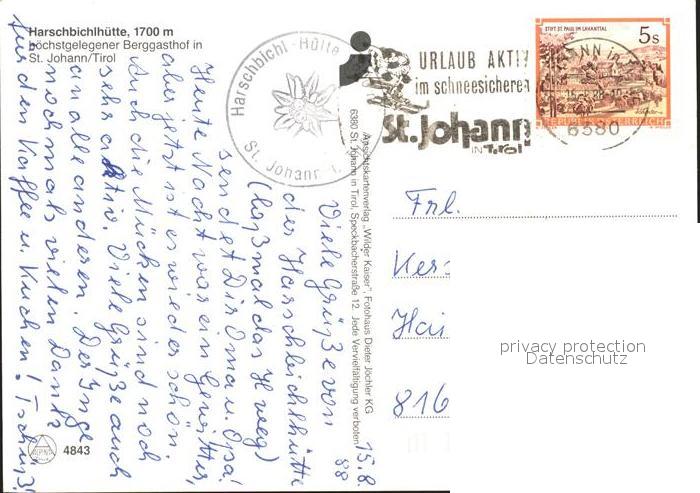 Harschbichlhütte, 1700 m
höchstgelegener Berggasthof in
St. Johann/Tirol
Harschbichl-Hütte
St. Johann i. T.
URLAUB AKTIV
im schneesicheren
St. Johann
IN TIROL
STIFT ST. PAUL IM LAVANTTAL
5 S
REPUBLIK ÖSTERREICH
6380
15.8.
88
Viele Grüße von
der Harschbichlhütte
(laß mal das H weg)
sendet Dir Oma u. Opa!
Heute Nacht war ein Gewitter,
aber jetzt ist es wieder schön.
Auch die Mücken sind noch
sehr aktiv. Viele Grüße auch
an alle anderen. Der Inge
nochmals vielen Dank
für den Kaffee u. Kuchen! Tschüß!
Ansichtskartenverlag „Wilder Kaiser", Fotohaus Dieter Jöchler KG
6380 St. Johann in Tirol, Speckbacherstraße 12. Jede Vervielfältigung verboten
Frl.
Kers
Hai
816
privacy protection
Datenschutz
4843